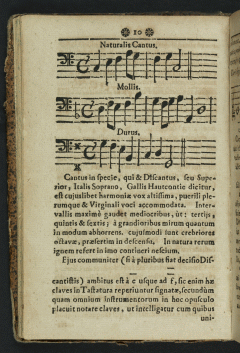 10
Naturalis Cantus.
Mollis.
Durus.
Cantus in specie, qui & Discantus, seu Supe-
rior, Italis Soprano, Gallis Hautcontie dicitur,
est cujuslibet harmoniæ vox altissima, puerili ple-
rumque & Virginali voci accommodata. Inter-
vallis maximè gaudet mediocribus, ut: tertiis,
quintis & sextis; à grandioribus mirum quantum
in modum abhorrens. cujusmodi sunt crebriores
octavæ, præsertim in descensu. In natura rerum
ignem refert in imo contineri nescium.
Ejus communiter (si à pluribus fiat decisio Dis-
cantistis) ambitus est à c usque ad f, sic enim hæ
claves in Tastatura reperiuntur signatæ, secundùm
quam omnium instrumentorum in hoc opusculo
placuit notare claves, ut intelligatur cum quibus
uni-